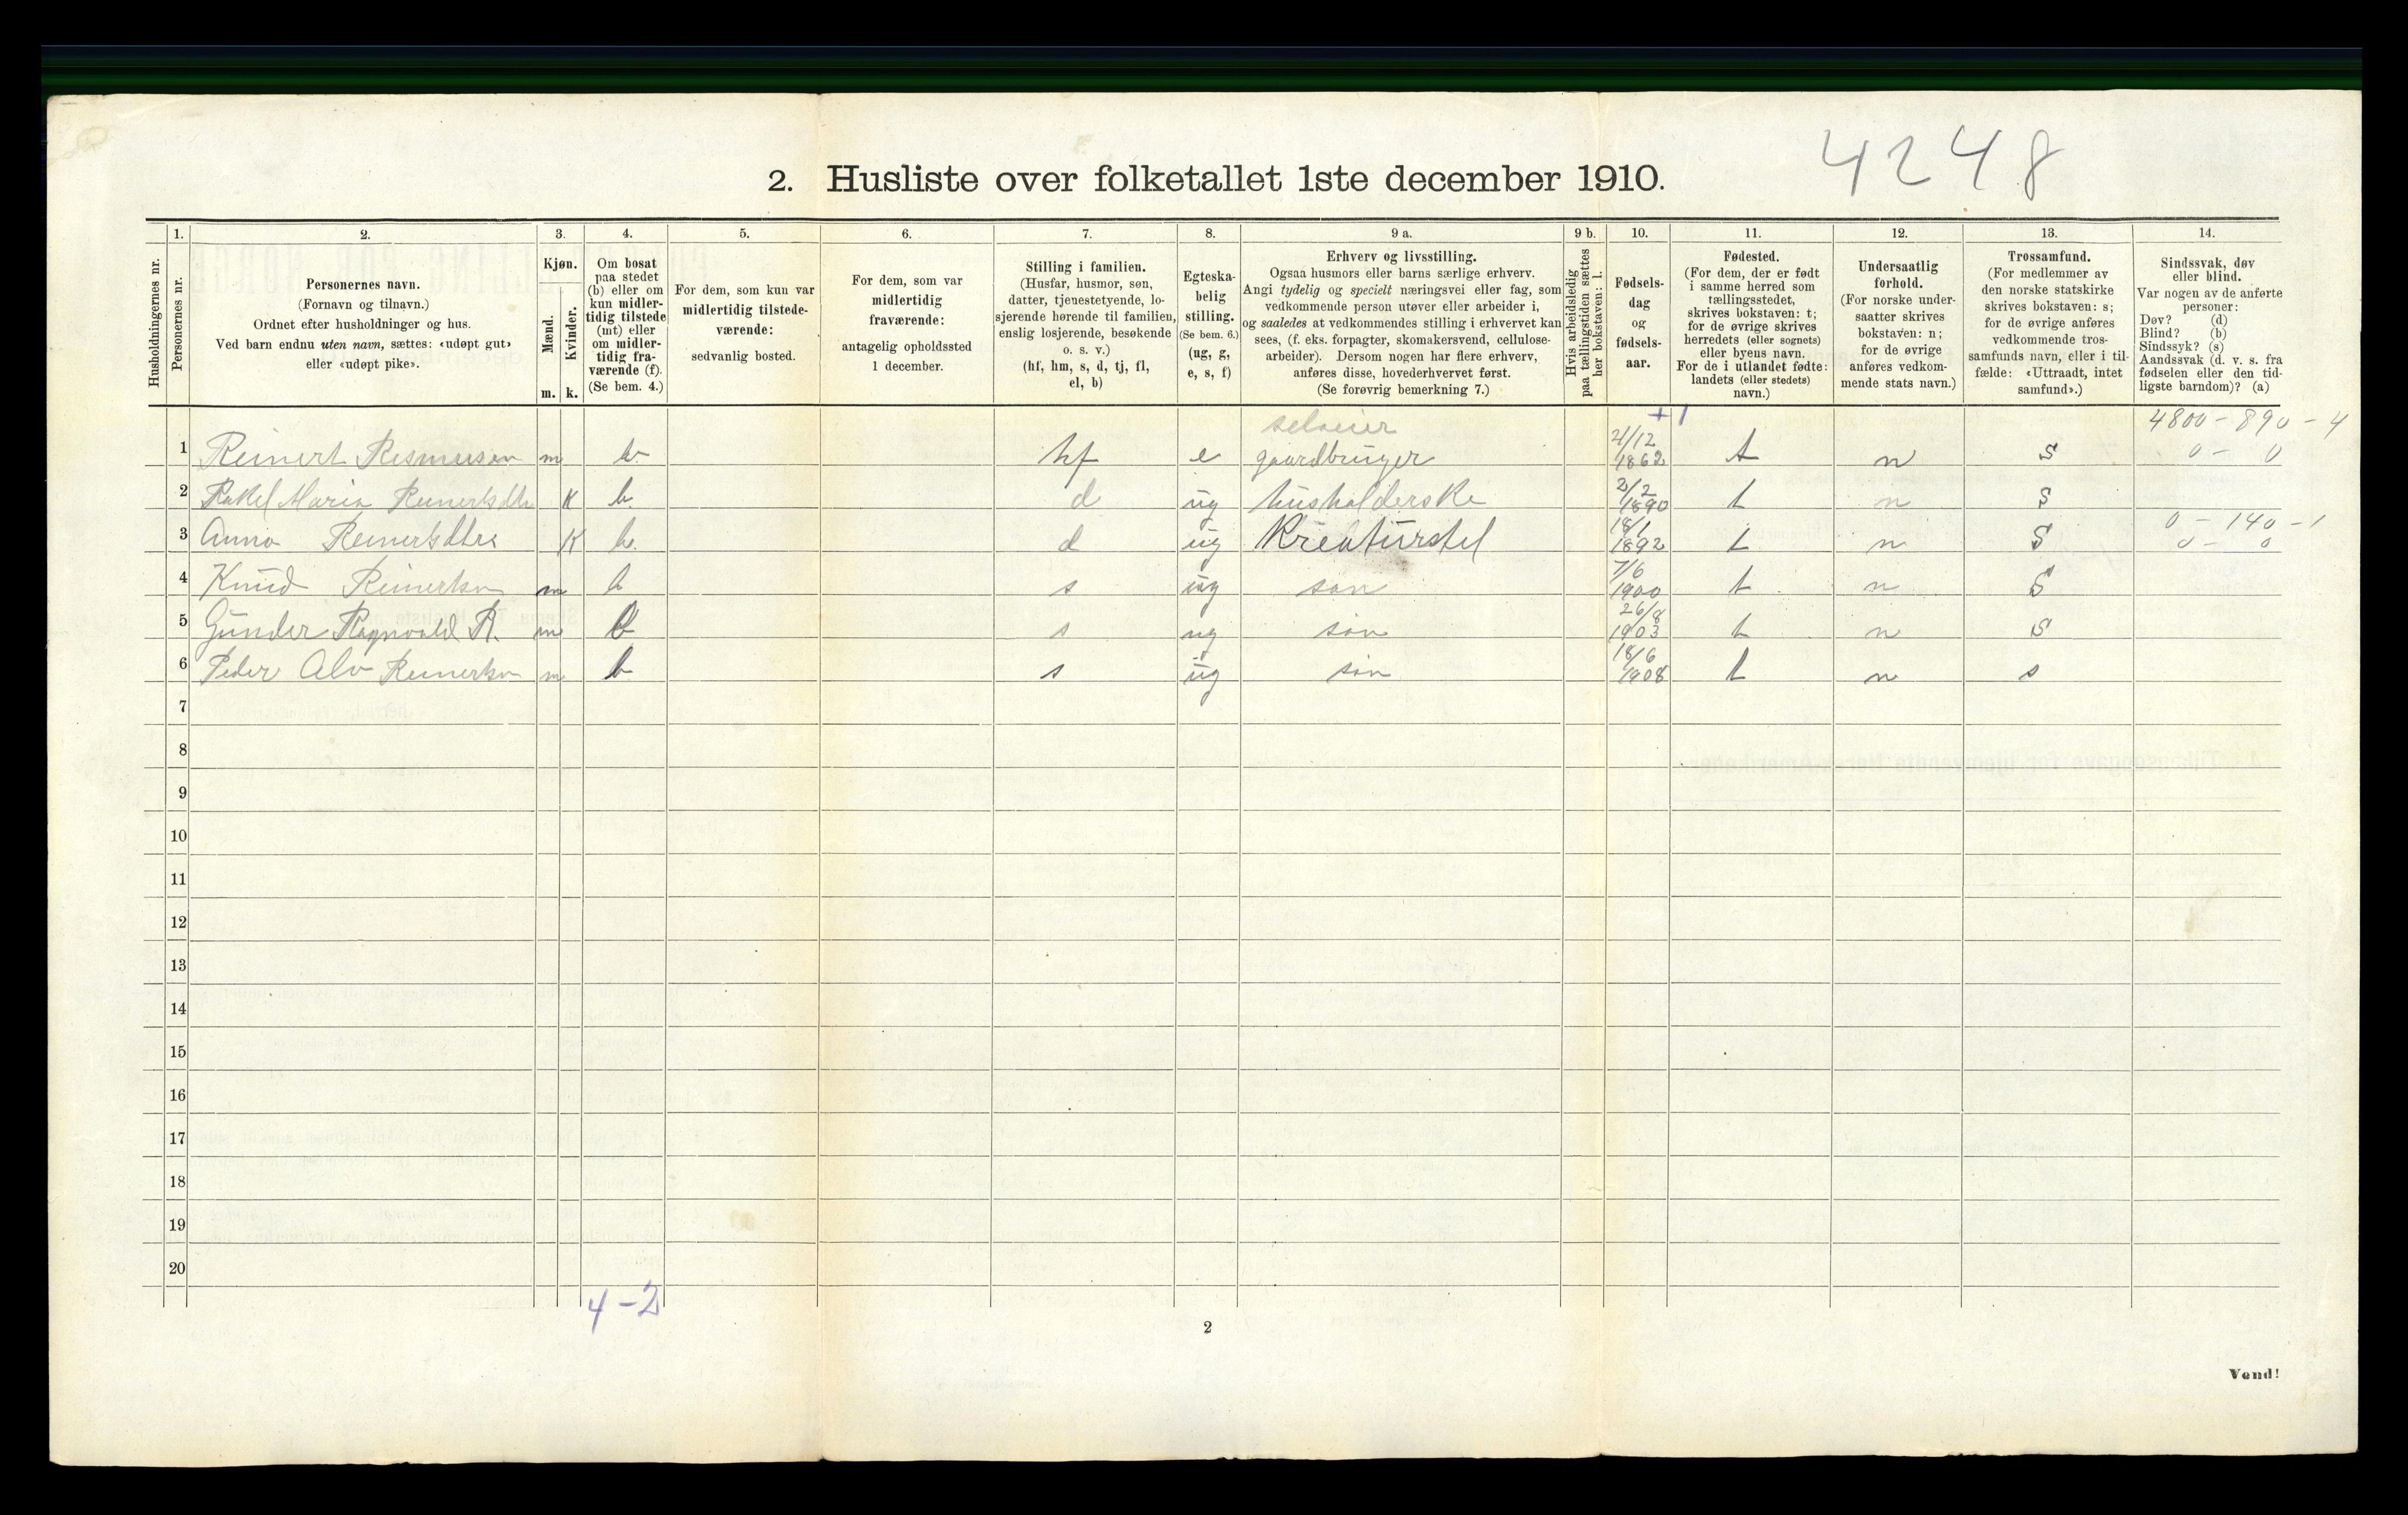 4248
2. Husliste over folketallet 1ste december 1910.
Husholdningernes nr.
1. Personernes nr.
2. Personernes navn.
(Fornavn og tilnavn.)
Ordnet efter husholdninger og hus.
Ved barn endnu uten navn, sættes: «udøpt gut»
eller «udøpt pike».
3. Kjøn.
Mænd. m.
Kvinder. k.
4. Om bosat
paa stedet
(b) eller om
kun midler-
tidig tilstede
(mt) eller
om midler-
tidig fra-
værende (f).
(Se bem. 4.)
5. For dem, som kun var
midlertidig tilstede-
værende:
sedvanlig bosted.
6. For dem, som var
midlertidig
fraværende:
antagelig opholdssted
1 december.
7. Stilling i familien.
(Husfar, husmor, søn,
datter, tjenestetyende, lo-
sjerende hørende til familien,
enslig losjerende, besøkende
o. s. v.)
(hf, hm, s, d, tj, fl,
el, b)
8. Egteska-
belig
stilling.
(Se bem. 6.)
(ug, g,
e, s, f)
9 a. Erhverv og livsstilling.
Ogsaa husmors eller barns særlige erhverv.
Angi tydelig og specielt næringsvei eller fag, som
vedkommende person utøver eller arbeider i,
og saaledes at vedkommendes stilling i erhvervet kan
sees, (f. eks. forpagter, skomakersvend, cellulose-
arbeider). Dersom nogen har flere erhverv,
anføres disse, hovederhvervet først.
(Se forøvrig bemerkning 7.)
9 b. Hvis arbeidsledig
paa tællingstiden sættes
her bokstaven: l.
10. Fødsels-
dag
og
fødsels-
aar.
11. Fødested.
(For dem, der er født
i samme herred som
tællingsstedet,
skrives bokstaven: t;
for de øvrige skrives
herredets (eller sognets)
eller byens navn.
For de i utlandet fødte:
landets (eller stedets)
navn.)
12. Undersaatlig
forhold.
(For norske under-
saatter skrives
bokstaven: n;
for de øvrige
anføres vedkom-
mende stats navn.)
13. Trossamfund.
(For medlemmer av
den norske statskirke
skrives bokstaven: s;
for de øvrige anføres
vedkommende tros-
samfunds navn, eller i til-
fælde: «Uttraadt, intet
samfund».)
14. Sindssvak, døv
eller blind.
Var nogen av de anførte
personer:
Døv? (d)
Blind? (b)
Sindssyk? (s)
Aandssvak (d. v. s. fra
fødselen eller den tid-
ligste barndom)? (a)
selveier +1 4800 - 890 - 4
1 Reinert Rasmusen m b. hf e gaardbruger 21/12 1862 t n S 0 - 0
2 Rakel Maria Reinertsdtr K b. d ug husholderske 2/2 1890 t n S
0 - 140 - 1
3 Anna Reinertsdtr K b. d ug Kreaturstel 18/1 1892 t n S 0 - 0
4 Knud Reinertsn m b s ug søn 7/6 1900 t n S
5 Gunder Ragnvald R. m b s ug søn 26/8 1903 t n S
6 Peder Alv Reinertsn m b s ug søn 18/6 1908 t n s
7
8
9
10
11
12
13
14
15
16
17
18
19
20
4-2
2
Vend!